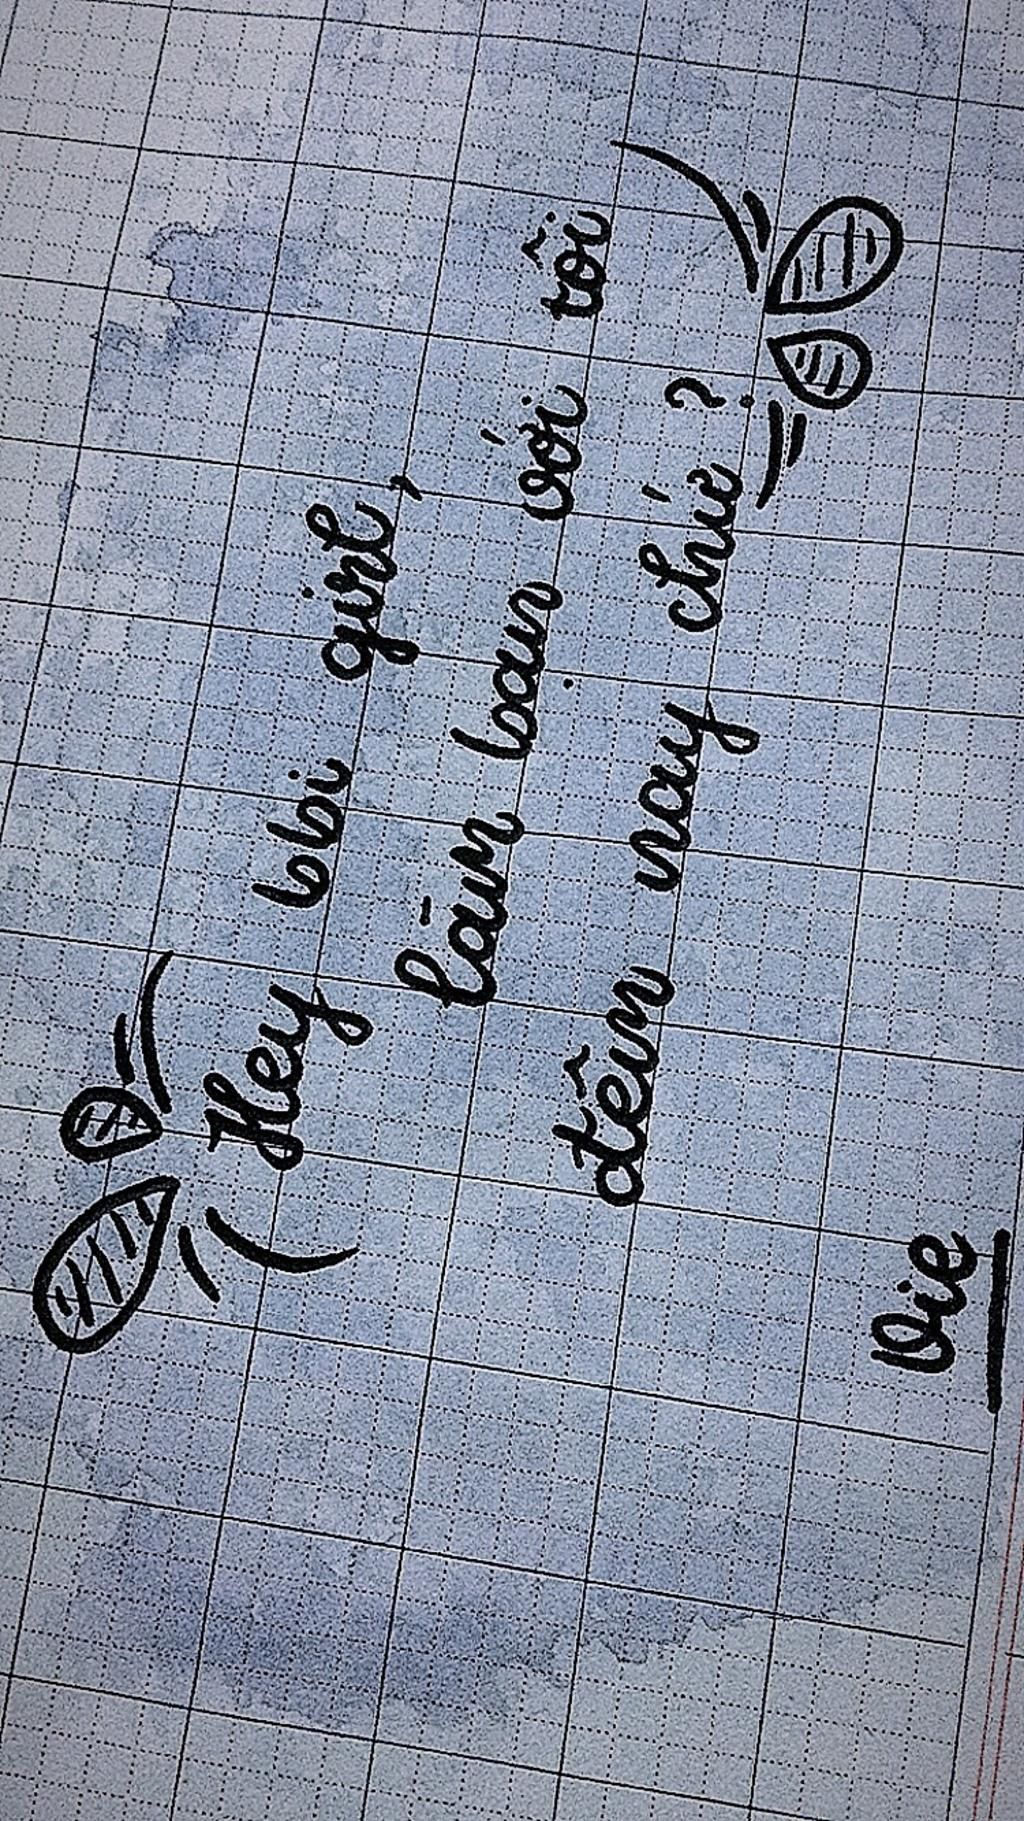 Hey bbi girl,
làm loạn với tôi
đêm nay chứ?
Vie